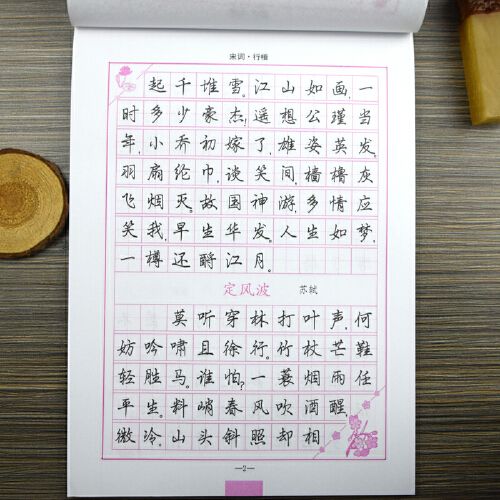 宋词·行楷
起千堆雪。江山如画，一
时多少豪杰！遥想公瑾当
年，小乔初嫁了，雄姿英发，
羽扇纶巾，谈笑间，樯橹灰
飞烟灭。故国神游，多情应
笑我，早生华发。人生如梦，
一樽还酹江月。
定风波 苏轼
莫听穿林打叶声，何
妨吟啸且徐行。竹杖芒鞋
轻胜马。谁怕？一蓑烟雨任
平生。料峭春风吹酒醒，
微冷，山头斜照却相
—2—